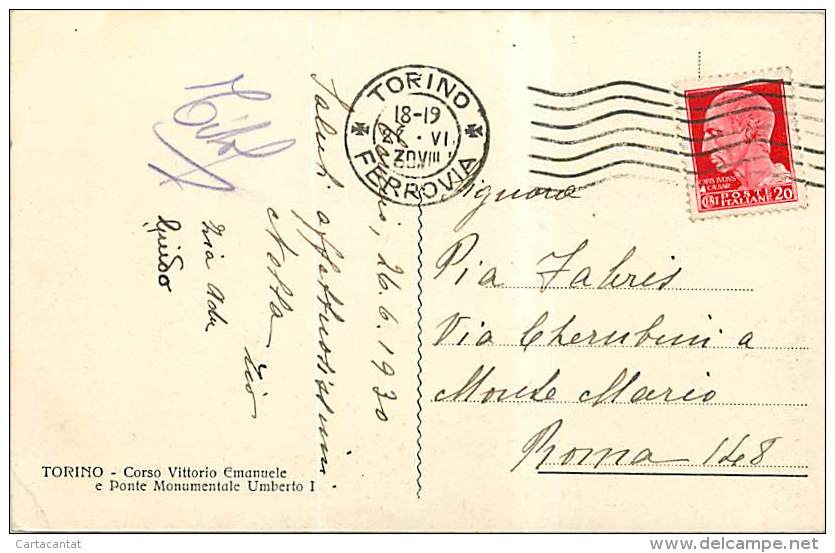 TORINO
18-19
VI
FERROVIA
CAIVS IVLIVS
CAESAR
CENT POSTE
ITALIANE 20
Signora
Pia Fabris
Via Cherubini a
Monte Mario
Roma 148
26.6.1930
Saluti affettuosissimi
Zio
Zia Ada
Guido
TORINO - Corso Vittorio Emanuele
e Ponte Monumentale Umberto I
Cartacantat
www.delcampe.net